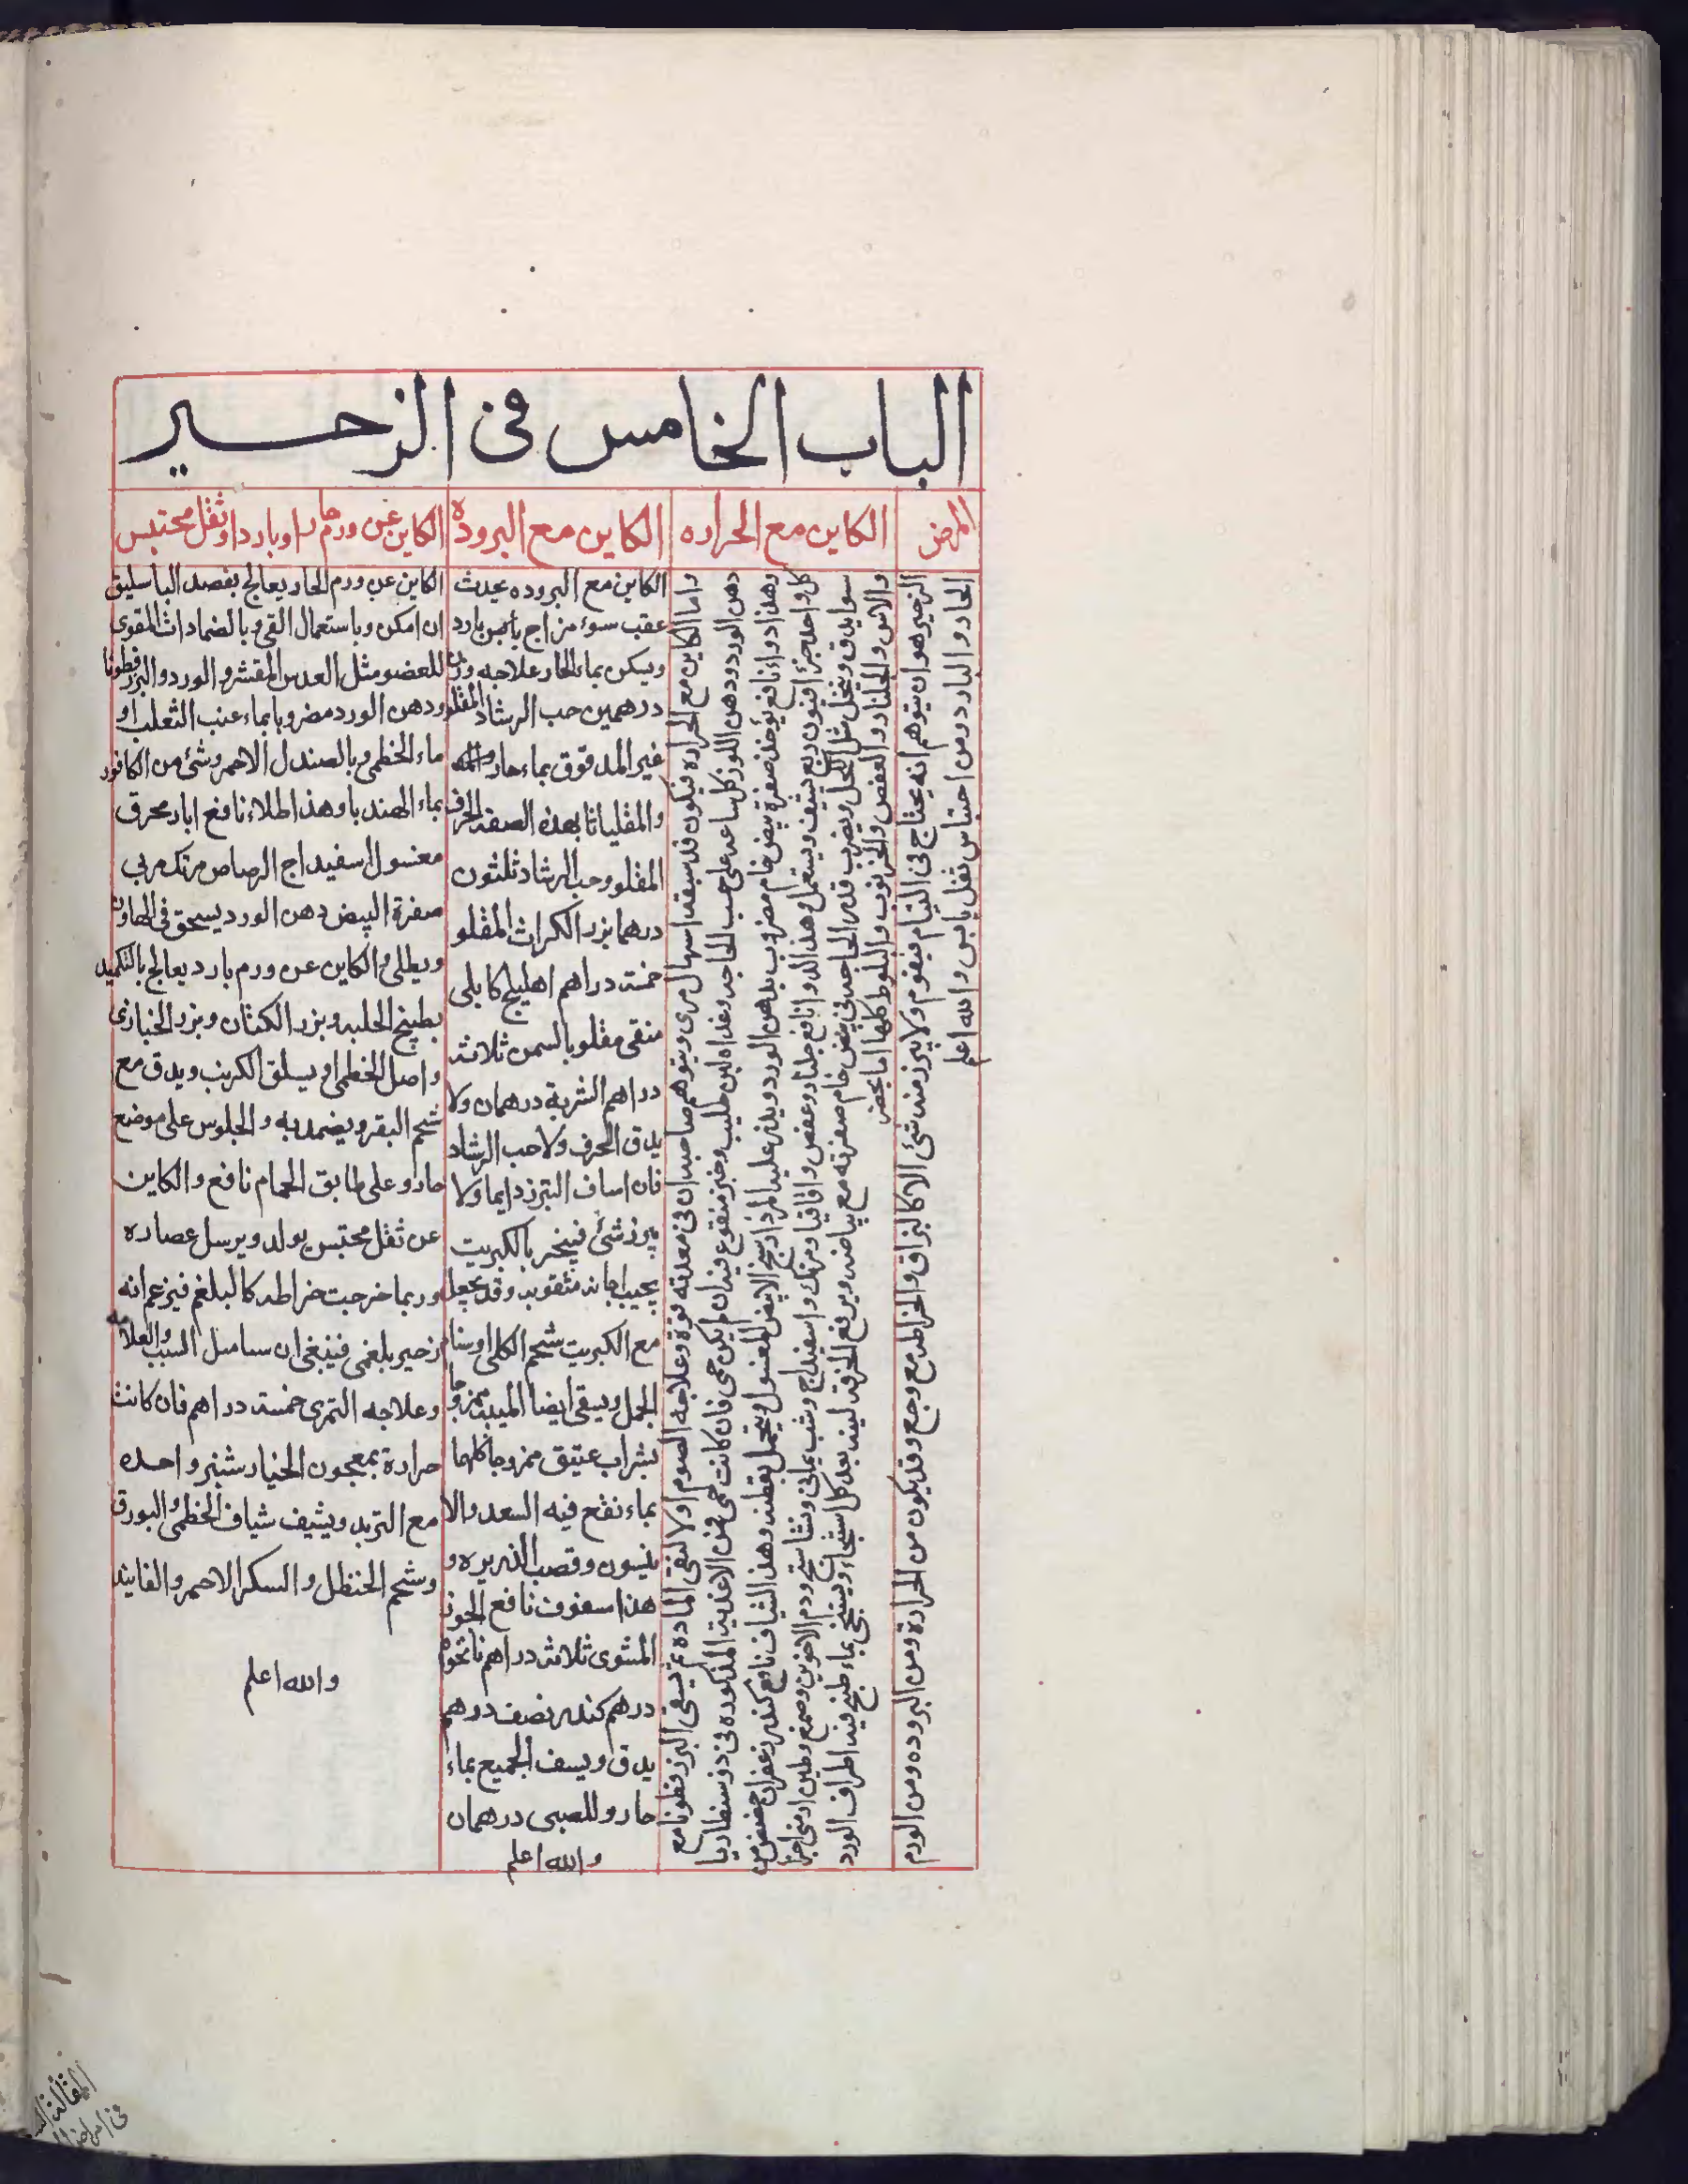 الباب الخامس في الزحير
المرض
الكاين مع الحراره
الكاين مع البرودة
الكاين عن ورم حار او بارد او ثفل محتبس
الزحير هو ان يتوهم انه يحتاج في القيام فيقوم ولا يبرز منه شئ الا كالبزاق والخراطه مع وجع وقد يكون من الحرارة ومن البروده ومن الورم
الحار والبارد ومن احتباس ثفل يابس والله اعلم
واما الكاين مع الحراره فيكون قد سبقه اسهال مرى ويتوهم صاحبه ان في معدته قوة وعلاجه الصوم اولا لتفنى الماده ثم يسقى البزرقطونا مع
دهن الورد ودهن اللوز كل ساعه على حسب الحاجه وغذاه لبن حليب وخبز منقوع فيه ان لم يكن حمى فان كانت حمى فمن الاغذية المذكوره في ذوسنطاريا
وهذا دواء نافع يؤخذ صفرة بيض خام مضروب بدهن الورد ويذر عليه المرداسنج الابيض المغسول ويتحمل بقطنه وهذا الشياف نافع كندر زعفران حضض من
كل واحد جزء افيون ربع يشيف ويستعمل وهذا الدواء نافع جلنار وعفص واقاقيا ومرتك واسفيداج وشب يماني ونشاستج ودم الاخوين وصمغ وطين ارمني اجزا
سوا يدق وينخل مثل الكحل ويضرب قدر الحاجه في بيض خام صفرته مع بياضه ويرفع المخرقه لينه بعد كل استنجاء ويستنجى بماء طبخ فيه اطراف الورد
والاس والجلنار والعفص والخرنوب والبلوط كلها اما بحضر
الكاين مع البروده يحدث
عقب سوء مزاج يابس بارد
ويسكن بماء الحار علاجه وزن
درهمين حب الرشاد المقلو
غير المدقوق بماء حار
والمقلياثا بهذه الصفه الحرف
المقلو وحب الرشاد ثلثون
درهما بزر الكراث المقلو
خمسة دراهم اهليلج كابلى
منقى مقلو بالسمن ثلاثه
دراهم الشربة درهمان ولا
يدق الحرف ولا حب الرشاد
فان اساف التبرز دايما ولا
يبرز شئ فيبخر بالكبريت
بجيب اجانه مثقوبه وقد يجعل
مع الكبريت شحم الكلى اوسنام
الجمل ويسقى ايضا الميبه ممزوجا
بشراب عتيق ممزوجا كلها
بماء نقع فيه السعد والا
نيسون وقصب الذريره و
هذا سفوف نافع الجوز
المشوى ثلاثه دراهم نانخوه
درهم كندر نصف درهم
يدق ويسف الجميع بماء
حار وللصبى درهمان
والله اعلم
الكاين عن ورم الحار يعالج بفصد الباسليق
ان امكن وباستعمال القى وبالضمادات المقوى
للعضو مثل العدس المقشر والورد والبزرقطونا
ودهن الورد مضروبا بماء عنب الثعلب او
ماء الخطمى وبالصندل الاحمر وشئ من الكافور
بماء الهندبا وهذا طلاء نافع ابار محرق
مغسول اسفيداج الرصاص مرتك مربى
صفرة البيض دهن الورد يسحق في الهاون
ويطلى والكاين عن ورم بارد يعالج بالتكميد
بطبيخ الحلبه وبزر الكتان وبزر الخبازى
واصل الخطمى او يسلق الكرنب ويدق مع
شحم البقر ويضمد به والجلوس على موضع
حار وعلى طابق الحمام نافع والكاين
عن ثفل محتبس يولد ويرسل عصاره
وربما خرجت خراطه كالبلغم فيزعم انه
زحير بلغمى فينبغى ان السبب والعلامه
وعلاجه التمرى خمسة دراهم فان كانت
حرارة بمعجون الخيار شنبر واحده
مع التربد ويشيف شياف الخطمى والبورق
وشحم الحنظل والسكر الاحمر والفانيد
والله اعلم